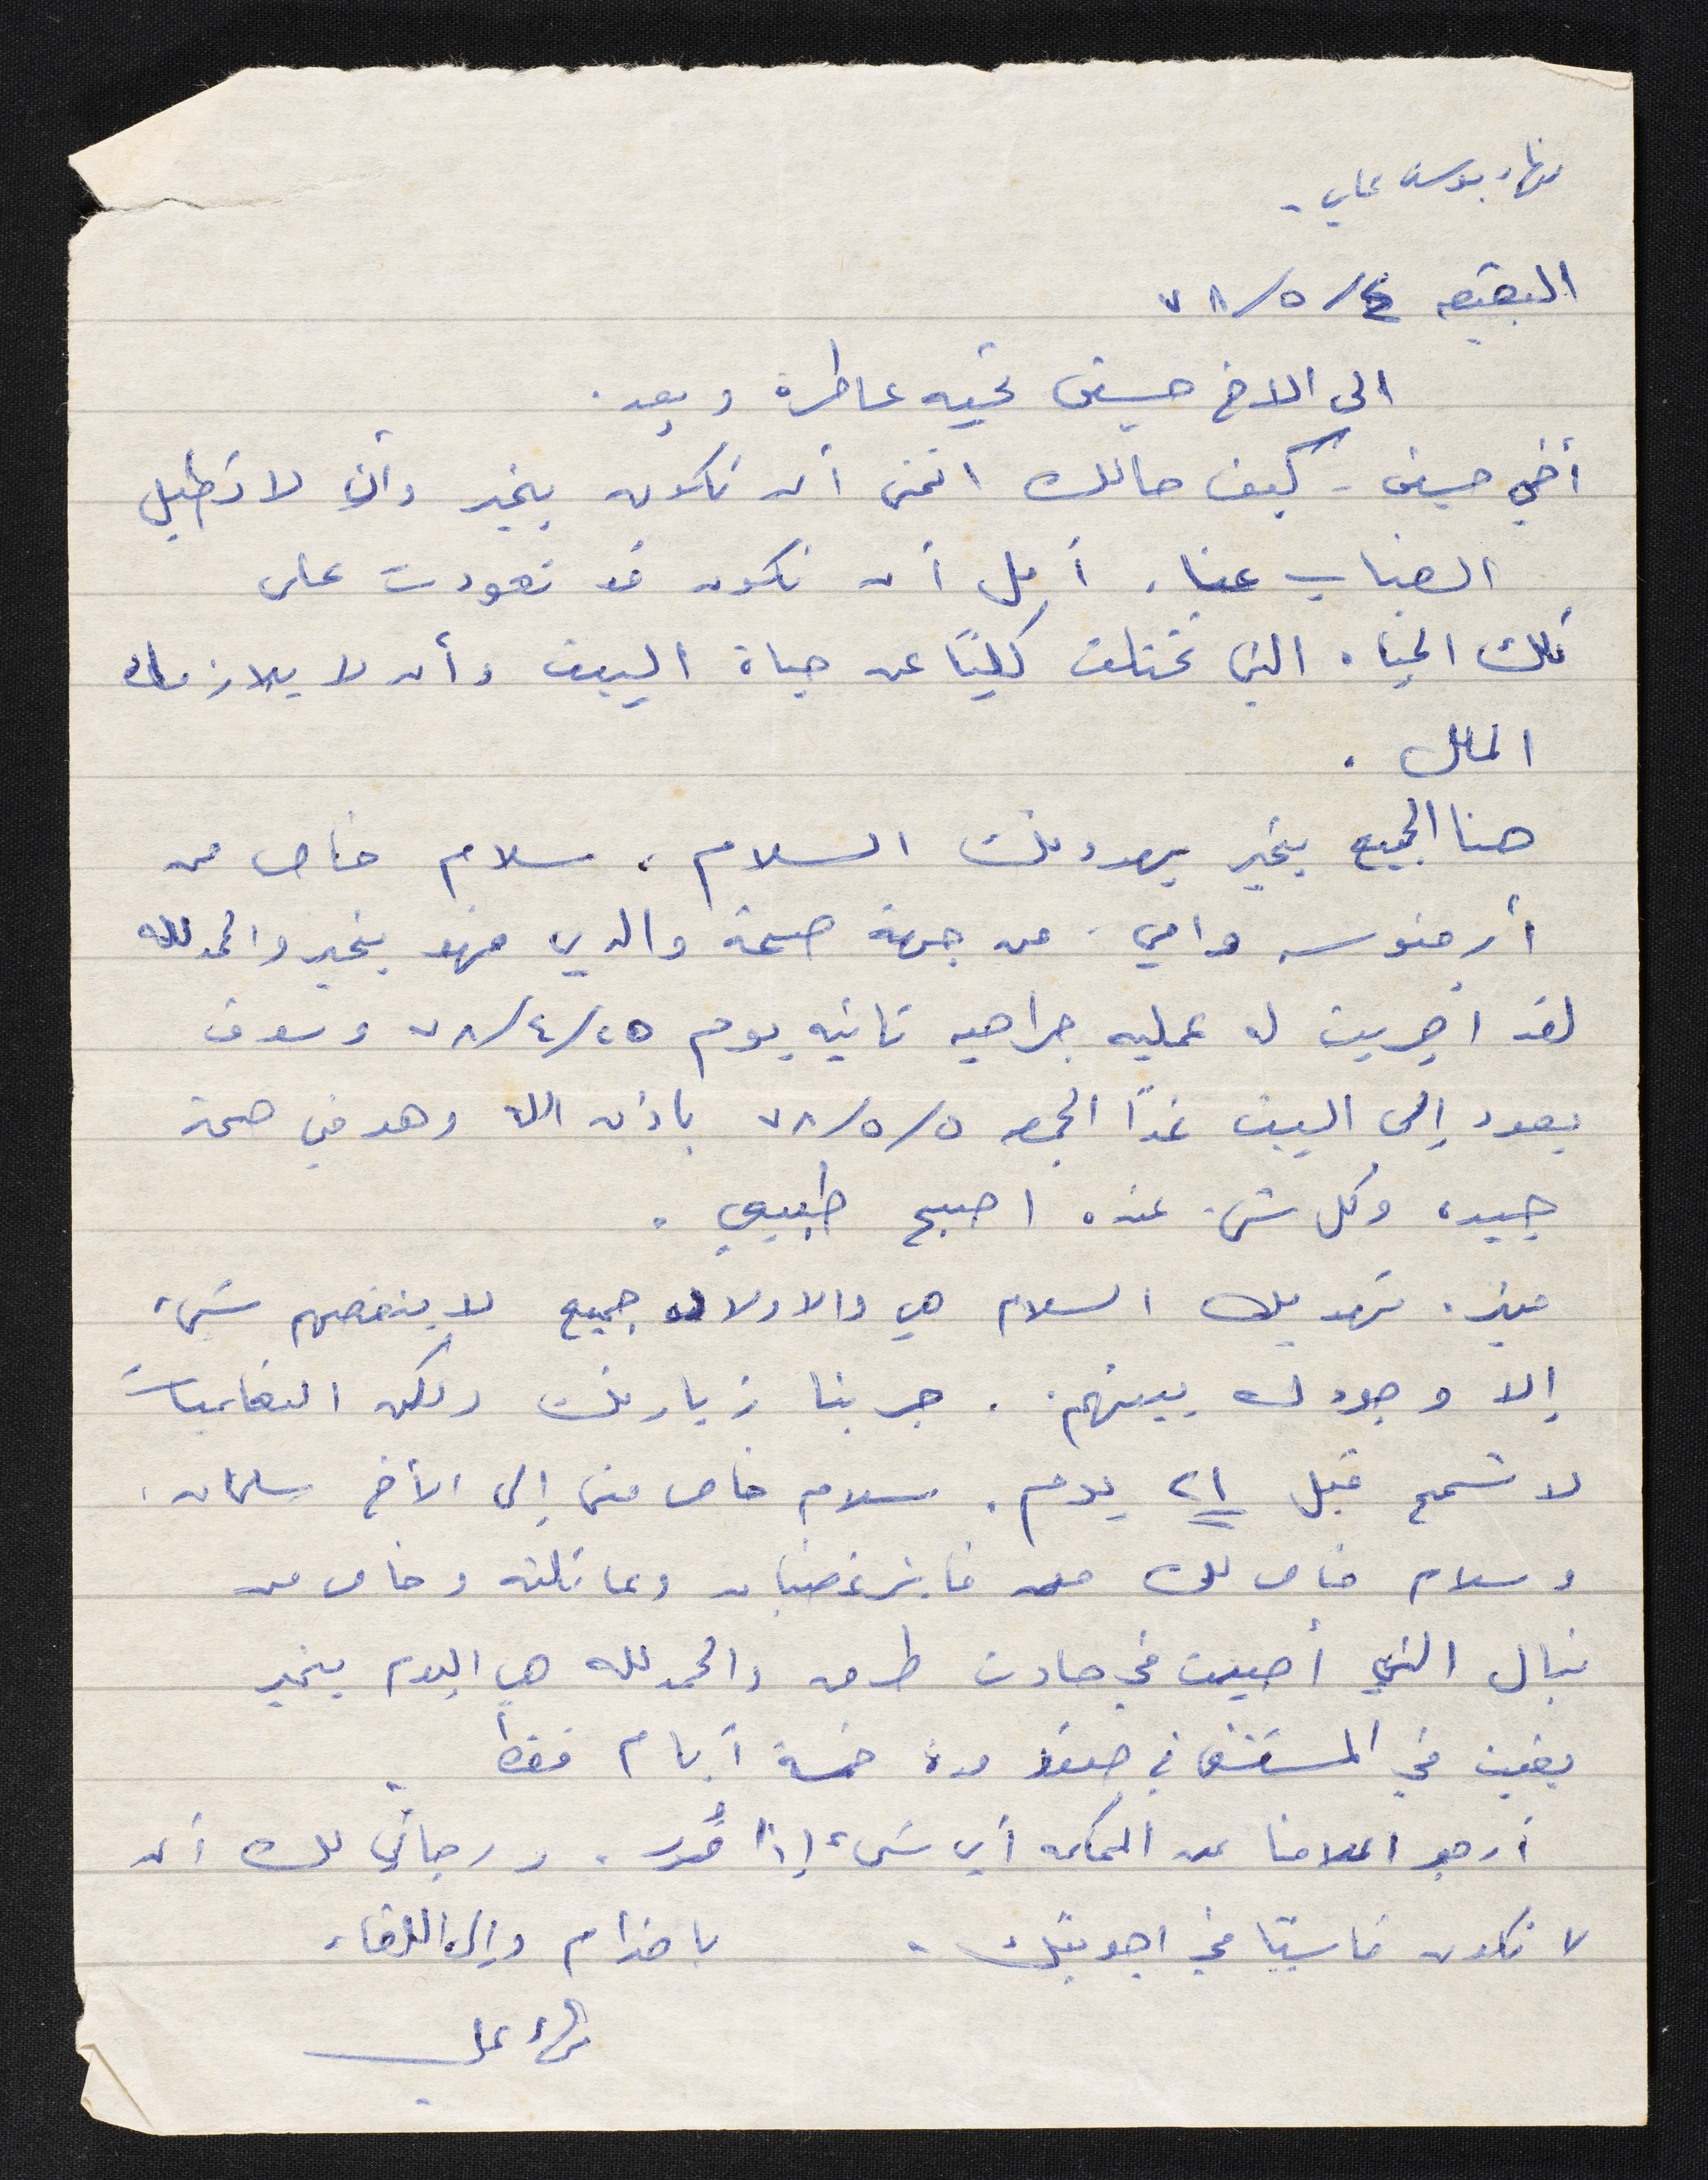 نهاد يوسف علي.
البقيعه ٤/٥/٧٨
الى الاخ حسين تحيه عاطرة وبعد.
أخي حسين - كيف حالك اتمنى أن تكون بخير وأن لا تطيل
الغياب عنا. أمل أن تكون قد تعودت على
تلك الحياه التي تختلف كلياً عن حياة البيت وأن لا يلازمك
الملل.
هنا الجميع بخير يهدونك السلام، سلام خاص من
أرمنوسه وامي. من جهة صحة والدي فهو بخير والحمدلله
لقد أجريت له عمليه جراحيه ثانيه يوم ٢٥/٤/٧٨ وسوف
يعود إلى البيت غداً الجمعه ٥/٥/٧٨ باذن الله وهو في صحة
جيده وكل شيء عنده اصبح طبيعي.
تهديك السلام هي والاولاد جميع لا ينقصهم شيء
إلا وجودك بينهم. جربنا زيارتك ولكن
لا تسمح قبل ٢١ يوم. سلام خاص مني إلى الأخ سلمان.
وسلام خاص لك من فايز غضبان وعائلته وخاص من
نبال التي أصيبت في حادث طرق والحمدلله هي اليوم بخير
بقيت في المستشفى في صفد مدة خمسة أيام فقط.
أرجو اعلامنا عن المحكمه أي شيء إذا قُرر. ورجائي لك أن
لا تكون قاسياً في اجوبتك. باحترام وإلى اللقاء
نهاد علي